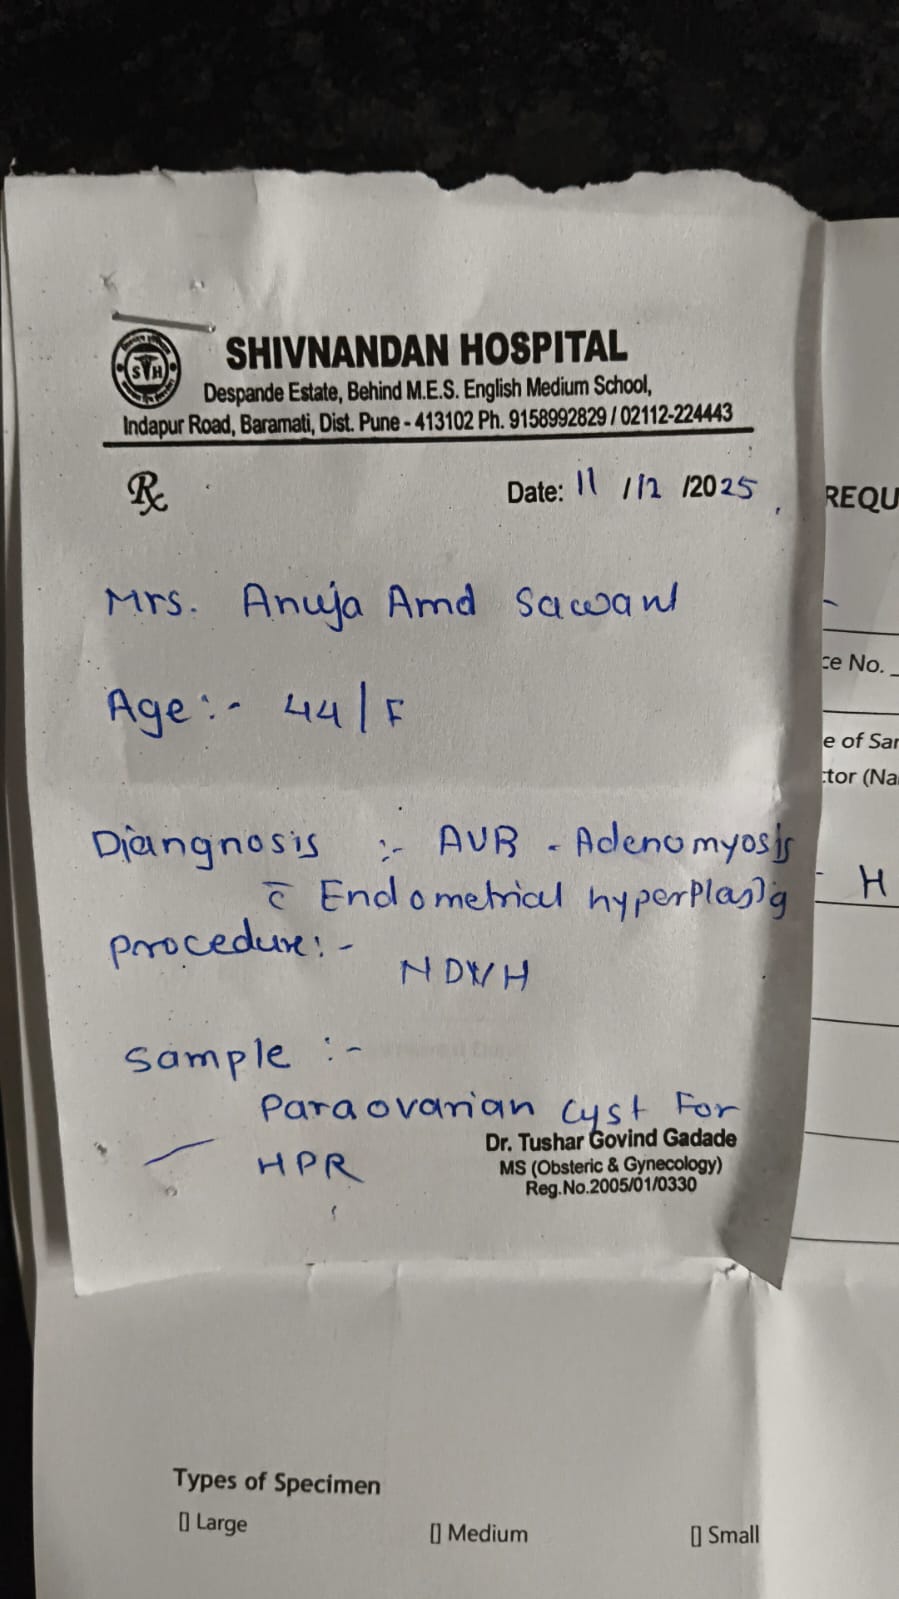 SHIVNANDAN HOSPITAL
Despande Estate, Behind M.E.S. English Medium School,
Indapur Road, Baramati, Dist. Pune - 413102 Ph. 9158992829 / 02112-224443
Rx
Date: 11 /12 /2025
Mrs. Anuja Amd Sawant
Age :- 44/F
Diangnosis :- AUB - Adenomyosis
c̄ Endometrial hyperplasia
procedure :-
NDVH
Sample :-
Paraovarian cyst For
HPR
Dr. Tushar Govind Gadade
MS (Obsteric & Gynecology)
Reg.No.2005/01/0330
REQU
ce No.
e of Sar
ctor (Na
H
Types of Specimen
[] Large
[] Medium
[] Small